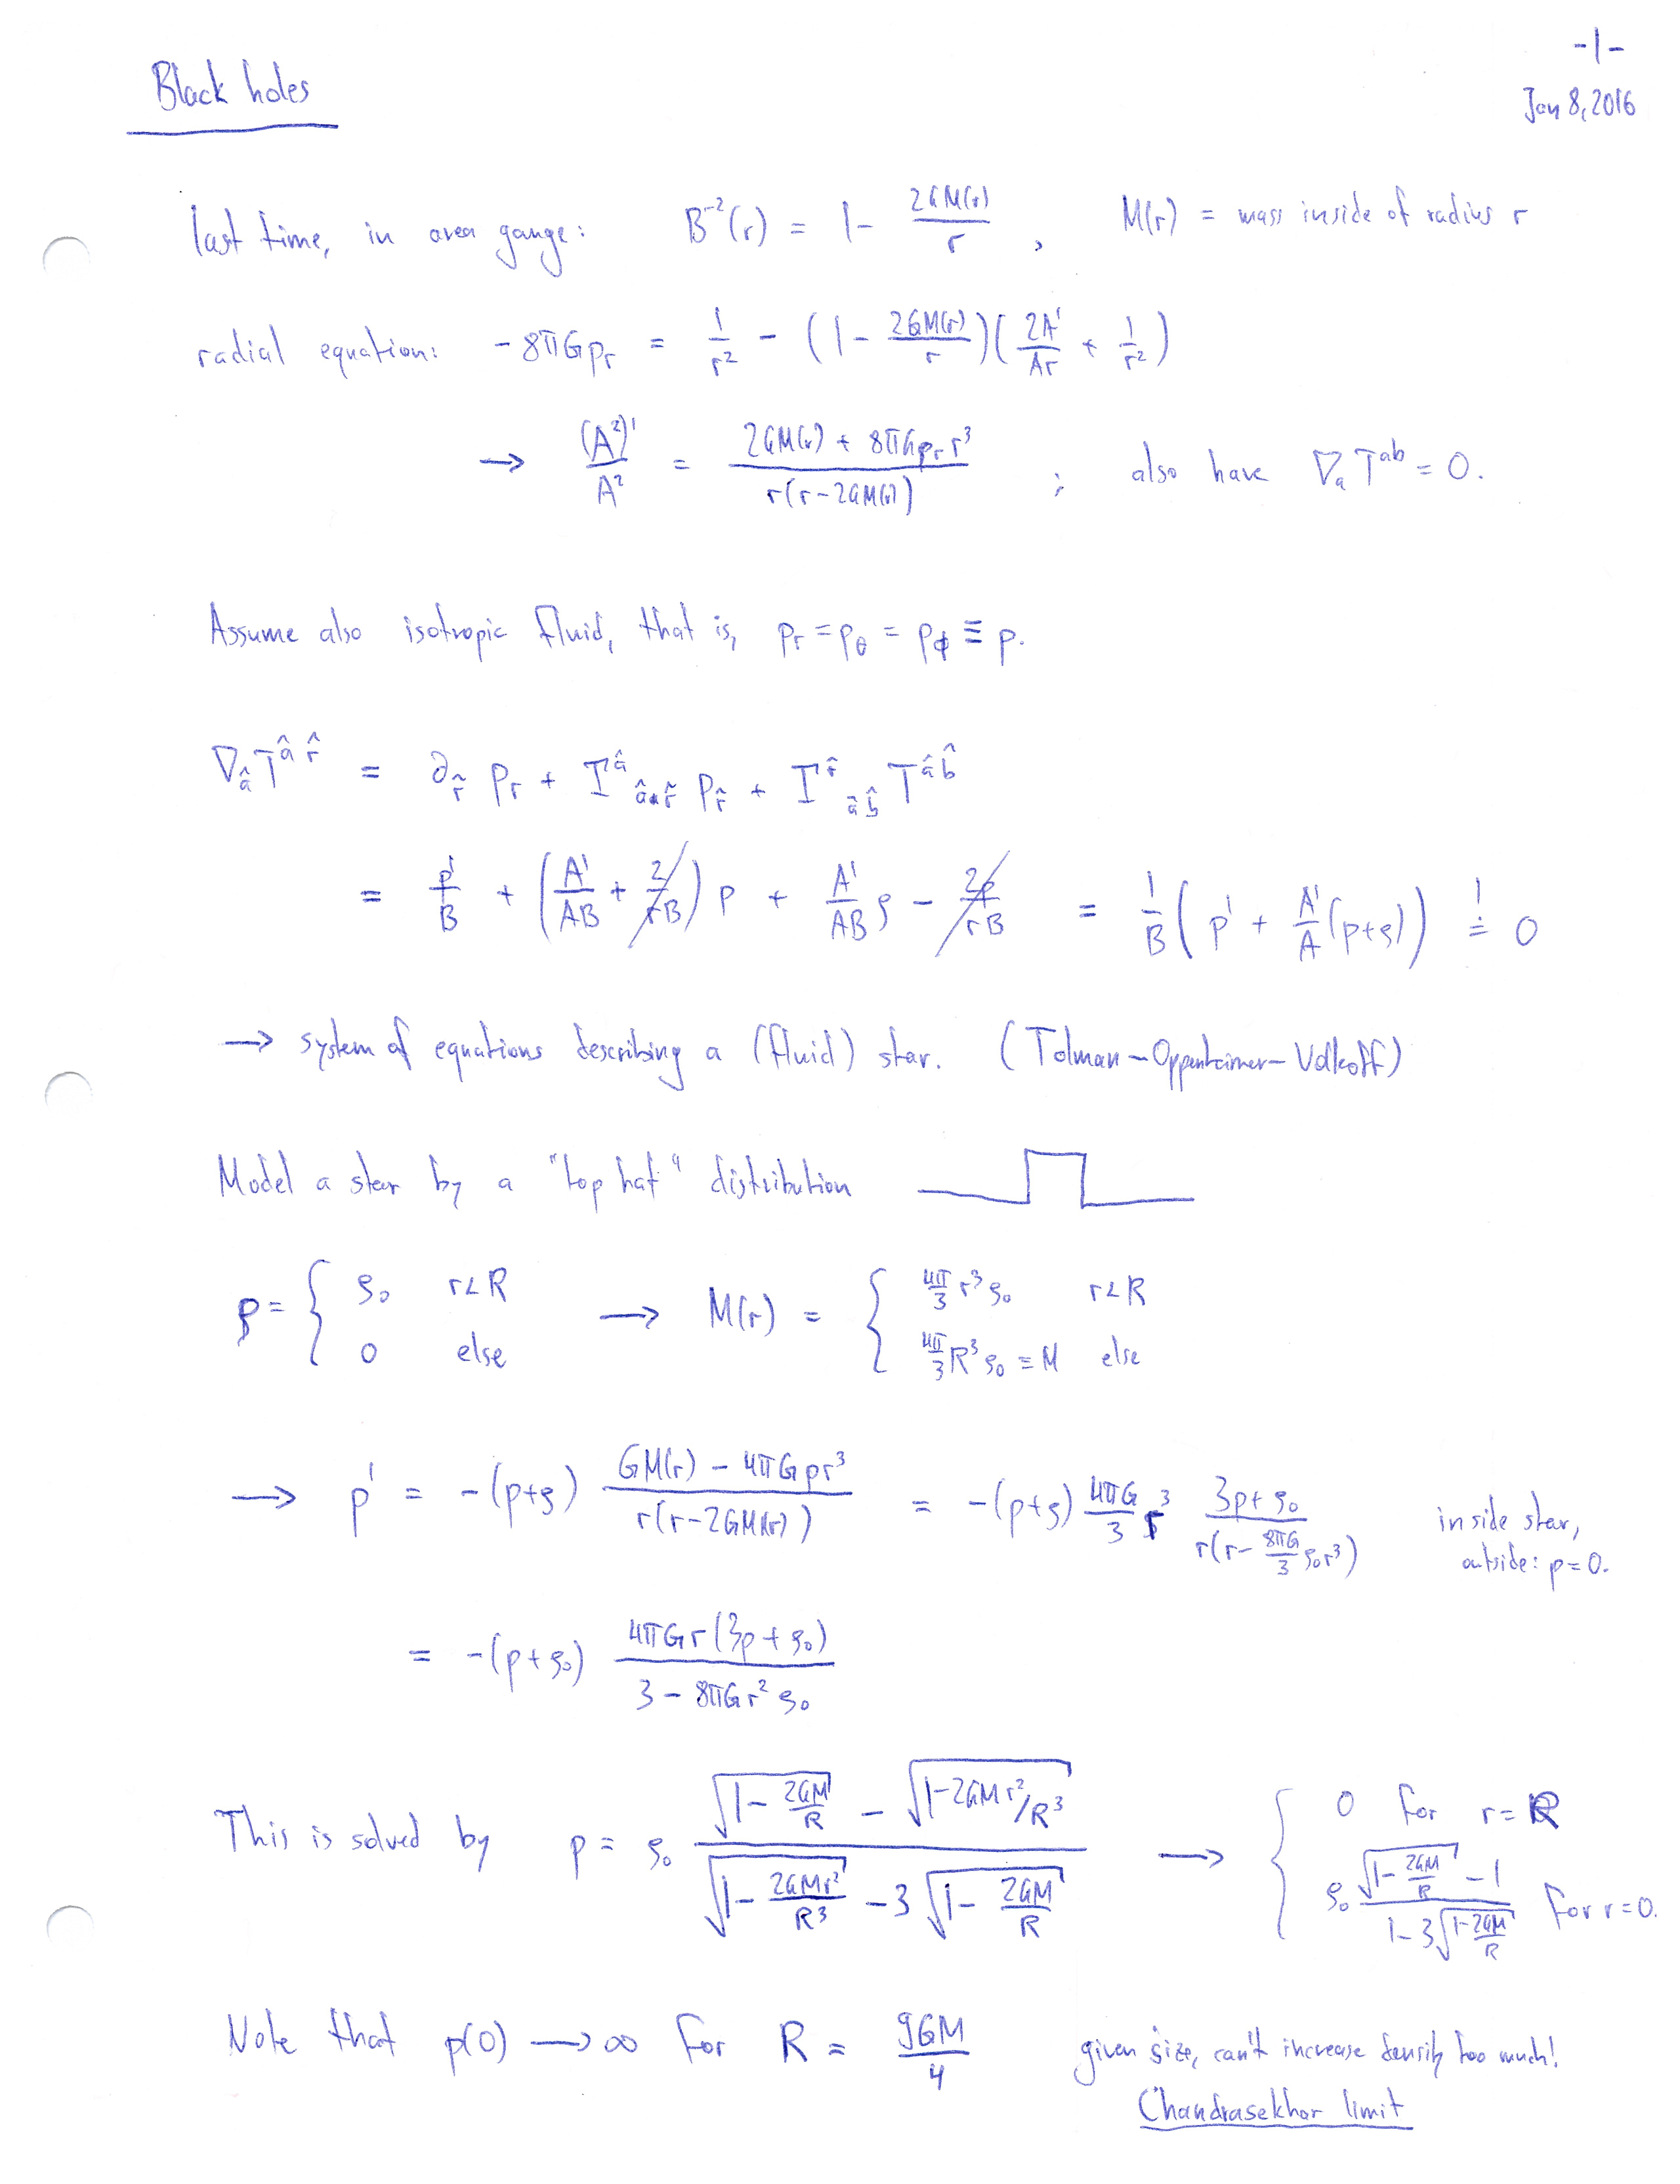 -1-
Black holes
Jan 8, 2016
last time, in area gauge: B⁻²(r) = 1 - 2GM(r)/r , M(r) = mass inside of radius r
radial equation: -8πGp_r = 1/r² - (1 - 2GM(r)/r)(2A'/Ar + 1/r²)
→ (A²)'/A² = (2GM(r) + 8πGp_r r³)/(r(r-2GM(r))) ; also have ∇_a T^{ab} = 0.
Assume also isotropic fluid, that is, p_r = p_θ = p_ϕ ≡ p.
∇_â T^{â r̂} = ∂_r̂ p_r + Γ^â_{â r̂} p_r̂ + Γ^r̂_{â b̂} T^{â b̂}
= p'/B + (A'/AB + 2/rB) p + A'/AB ρ - 2p/rB = 1/B (p' + A'/A (p+ρ)) =! 0
→ system of equations describing a (fluid) star. (Tolman-Oppenheimer-Volkoff)
Model a star by a "top hat" distribution
ρ = { ρ₀ r<R → M(r) = { 4π/3 r³ρ₀ r<R
0 else 4π/3 R³ρ₀ ≡ M else
→ p' = -(p+ρ) (GM(r) - 4πGpr³)/(r(r-2GM(r))) = -(p+ρ) 4πG/3 r³ (3p+ρ₀)/(r(r - 8πG/3 ρ₀r³)) inside star,
outside: p=0.
= -(p+ρ₀) 4πGr(3p+ρ₀)/(3 - 8πGr²ρ₀)
This is solved by p = ρ₀ (√(1 - 2GM/R) - √(1-2GMr²/R³))/(√(1 - 2GMr²/R³) - 3√(1 - 2GM/R)) → { 0 for r=R
ρ₀ (√(1-2GM/R) - 1)/(1-3√(1-2GM/R)) for r=0.
Note that p(0) → ∞ for R = 9GM/4 given size, can't increase density too much!
Chandrasekhar limit